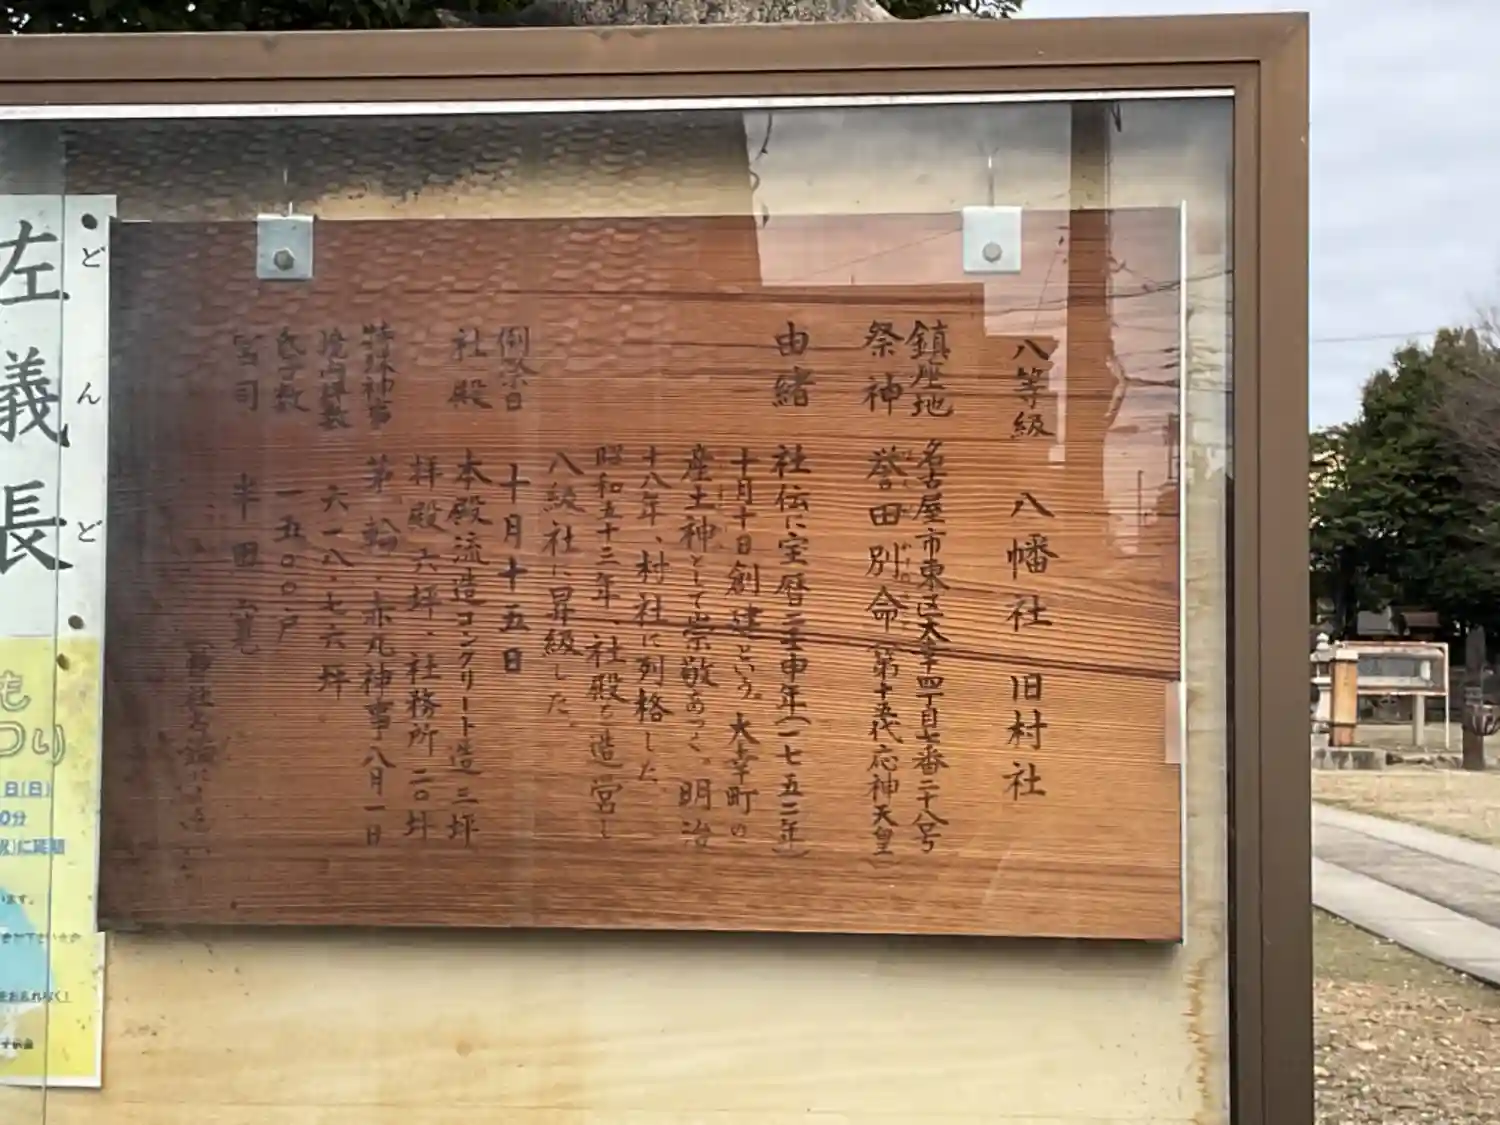 八等級 八幡社 旧村社
鎮座地 名古屋市東区大幸四丁目七番二十八号
祭神 誉田別命(第十五代応神天皇)
由緒 社伝に宝暦二壬申年(一七五二年)
十月十日創建という。大幸町の
産土神として崇敬あつく。明治
十八年、村社に列格した
昭和五十三年、社殿を造営し
八級社に昇級した。
例祭日 十月十五日
社殿 本殿流造コンクリート造 三坪
拝殿 六坪、社務所 二〇坪
特殊神事 茅輪・赤丸神事八月一日
境内坪数 六一八・七六坪
氏子数 一五〇〇戸
宮司 半田
どんど
左義長
もつり
日(日)
0分
に延期
います。
をお忘れなく!